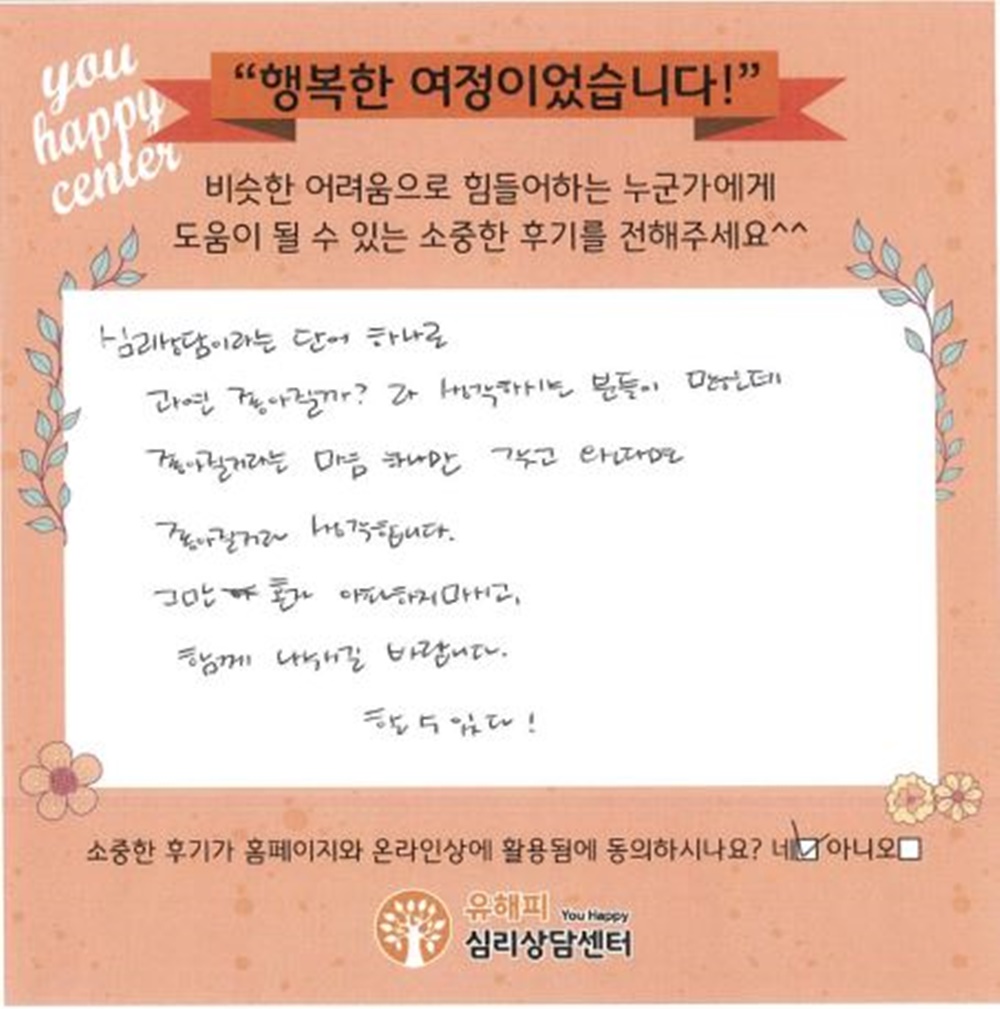 you
happy
center
“행복한 여정이었습니다!”
비슷한 어려움으로 힘들어하는 누군가에게
도움이 될 수 있는 소중한 후기를 전해주세요^^
심리상담이라는 단어 하나로
과연 좋아질까? 라 생각하시는 분들이 많은데
좋아질거라는 마음 하나만 갖고 온다면
좋아질거라 생각합니다.
그만 혼자 아파하지마시고,
함께 나눠서길 바랍니다.
할 수 있다!
소중한 후기가 홈페이지와 온라인상에 활용됨에 동의하시나요? 네☑아니오☐
유해피 You Happy
심리상담센터